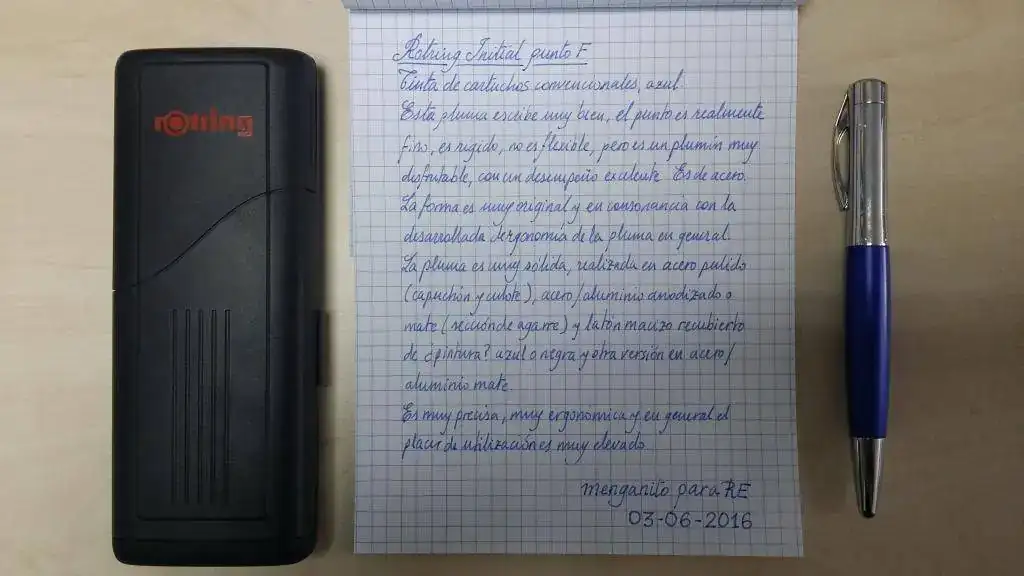 rotring
Rotring Initial punto F
Tinta de cartuchos convencionales, azul.
Esta pluma escribe muy bien, el punto es realmente
fino, es rígido, no es flexible, pero es un plumín muy
disfrutable, con un desempeño excelente. Es de acero.
La forma es muy original y en consonancia con la
desarrollada ergonomía de la pluma en general.
La pluma es muy sólida, realizada en acero pulido
(capuchón y culote), acero/aluminio anodizado o
mate (sección de agarre) y latón macizo recubierto
de ¿pintura? azul o negra y otra versión en acero/
aluminio mate.
Es muy precisa, muy ergonomica y en general el
placer de utilización es muy elevado.
menganito para RE
03-06-2016